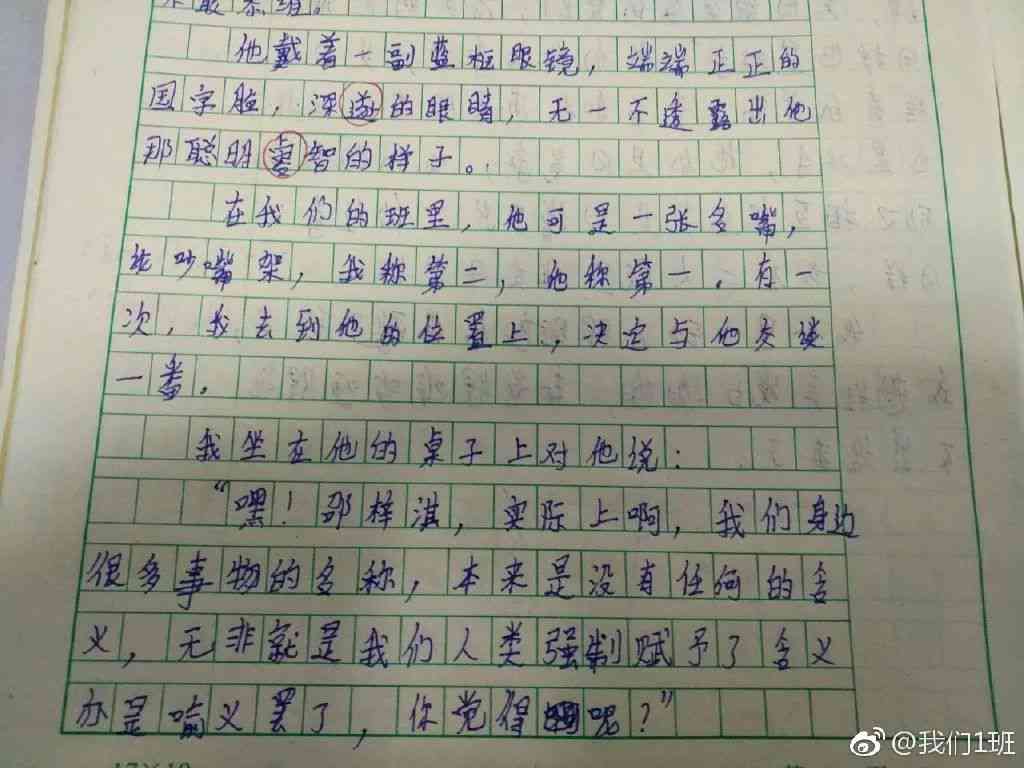 他戴着一副蓝框眼镜，端端正正的
国字脸，深邃的眼睛，无一不透露出他
那聪明睿智的样子。
在我们的班里，他可是一张名嘴，
论吵嘴架，我称第二，他称第一。有一
次，我去到他的位置上，决定与他交谈
一番。
我坐在他的桌子上对他说：
“嘿！邵梓淇，实际上啊，我们身边
很多事物的名称，本来是没有任何的含
义，无非就是我们人类强制赋予了含义
亦是喻义罢了，你觉得呢？”
@我们1班